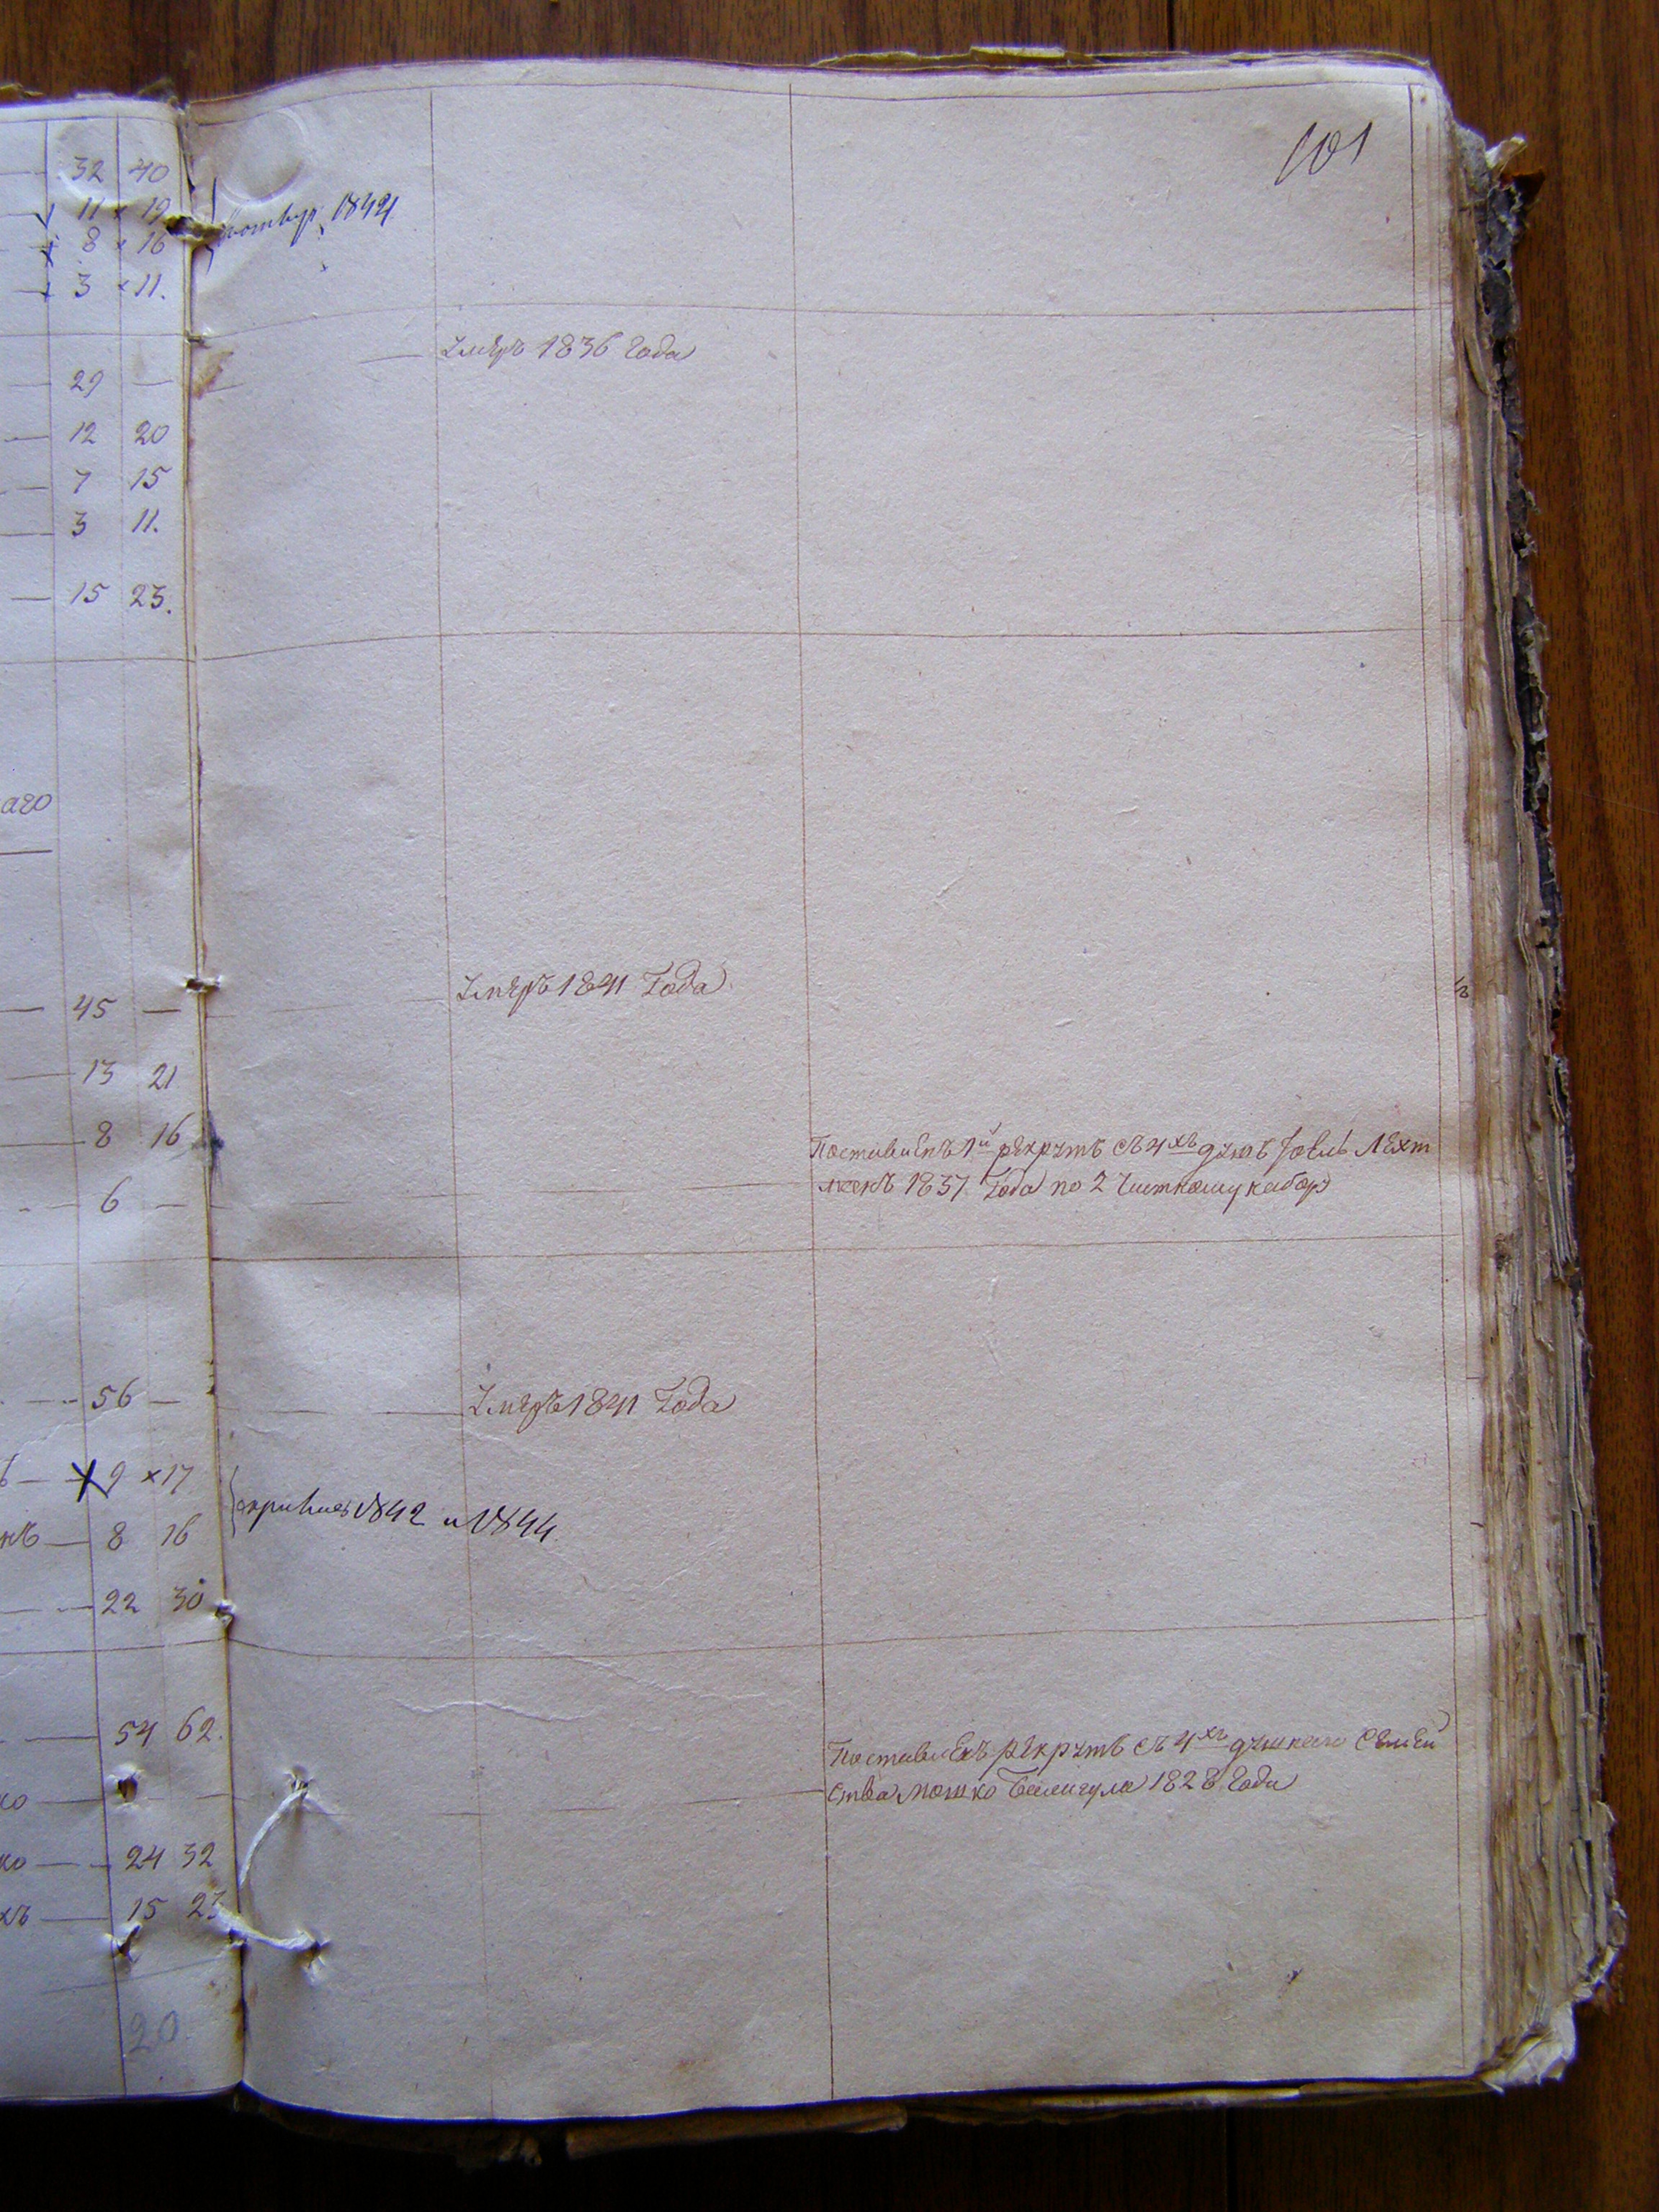 101
32 40
11 × 19
8 × 16
3 × 11.
1844
Умеръ 1836 года
29 —
12 20
7 15
3 11.
15 23.
аго
45 —
Умеръ 1841 Года
13 21
8 16
6 —
Поставленъ 1й рекрутъ съ 4хъ душъ
1837 Года по 2 набору
56 —
Умеръ 1841 Года
9 × 17
1842 и 1844
нъ — 8 16
22 30
54 62.
Поставленъ рекрутъ съ 4хъ душнаго Семей
ства Мошко 1828 Года
ко —
ко — 24 32
хъ — 15 23
20